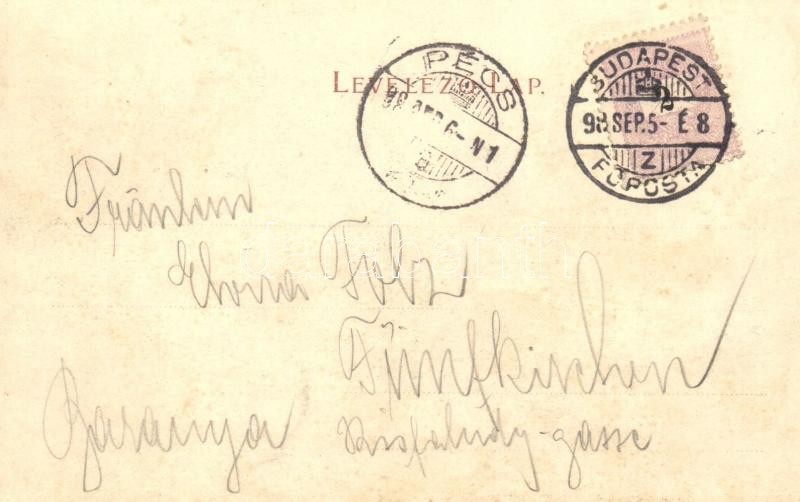 LEVELEZŐ-LAP.
PÉCS
98 SEP. 6- N 1
BUDAPEST
2
98.SEP.5- É 8
Z
FŐPOSTA
Fräulein
Ilona Folz
Fünfkirchen
Baranya Kisfaludy-gasse
darabanth